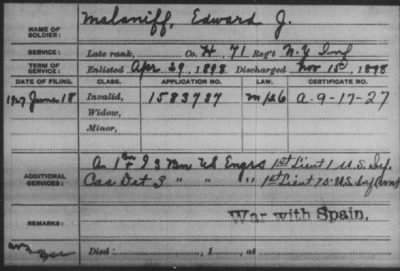 NAME OF SOLDIER: Malaniff, Edward J.
SERVICE: Late rank, Co. H, 71 Reg't N.Y. Inf
TERM OF SERVICE: Enlisted Apr 29, 1898 Discharged Nov 15, 1898
DATE OF FILING. CLASS. APPLICATION NO. LAW. CERTIFICATE NO.
1927 June 18 Invalid, 1583737 A-9-17-27
Widow,
Minor,
ADDITIONAL SERVICES: 3 Bn US Engrs 1st Lieut 1 U.S. Inf.
Cas Det 3 " " " 1st Lieut U.S. Inf
REMARKS: War with Spain.
Died: , 1 , at